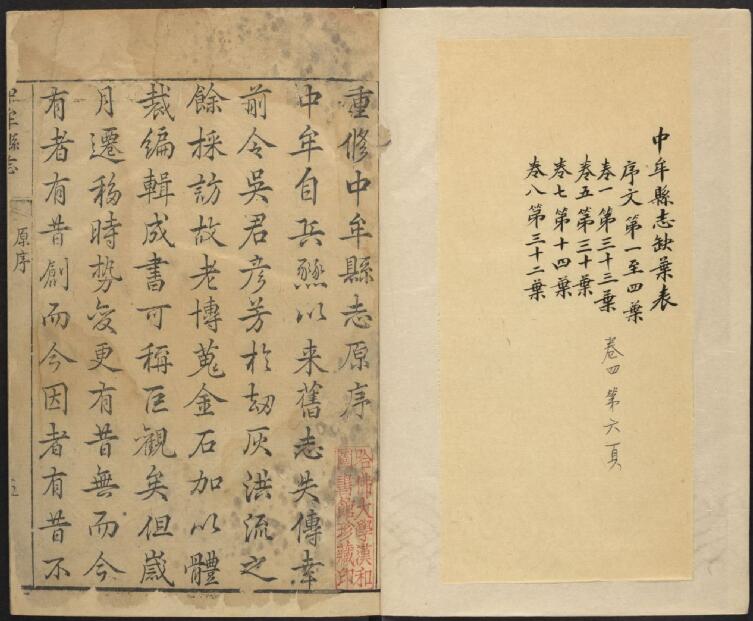 中牟縣志缺葉表
序文第一至四葉
卷一第三十三葉
卷五第三十葉
卷七第十四葉
卷八第三十二葉
卷四第六頁
重修中牟縣志原序
中牟自兵燹以来舊志失傳幸
前令吳君彦芳於刼灰洪流之
餘採訪故老博蒐金石加以體
裁編輯成書可稱巨觀矣但歲
月遷移時勢變更有昔無而今
有者有昔創而今因者有昔不
哈佛大學漢和
圖書館珍藏印
中牟縣志
原序
五